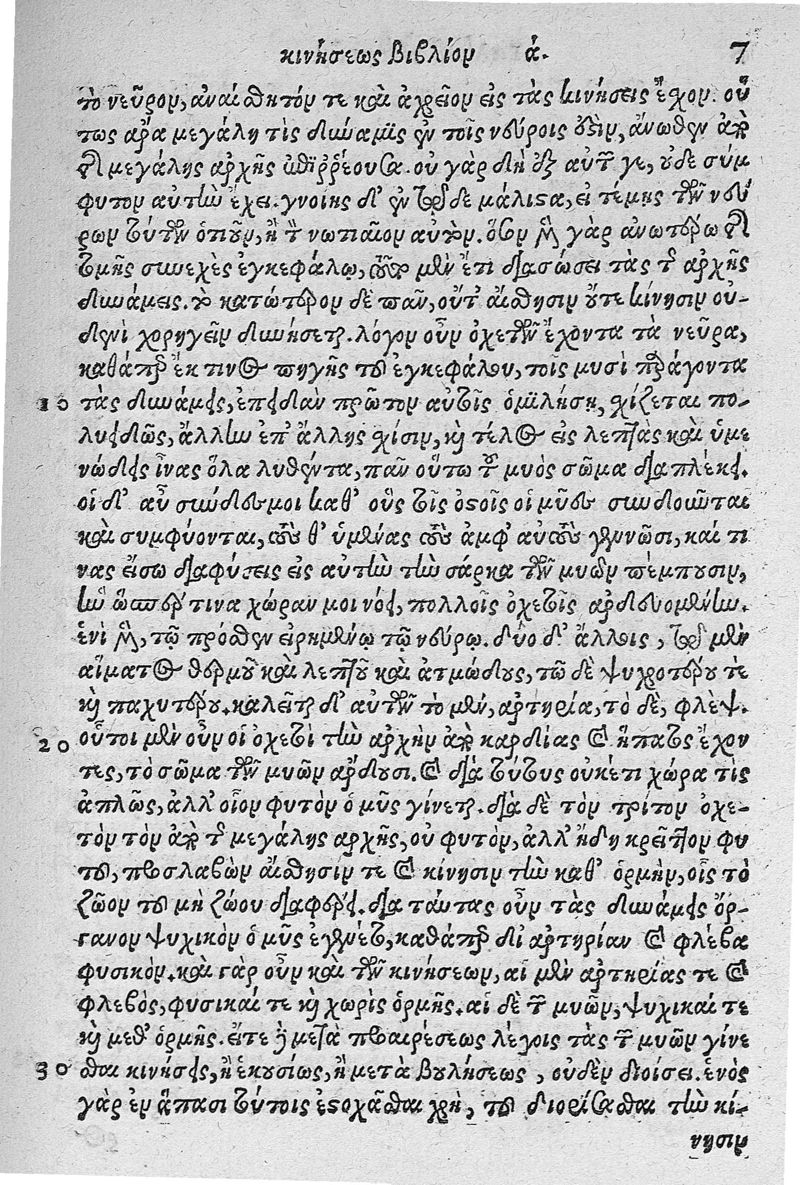 κινήσεως βιβλίον ά. 7
τὸ νεῦρον, ἀναίσθητόν τε καὶ ἀχρεῖον εἰς τὰς κινήσεις ἔχον. οὕ
τως ἄρα μεγάλη τὶς δύναμις ἐν τοῖς νεύροις ὅξιν, ἄνωθεν ἀπὸ
τῆς μεγάλης ἀρχῆς ἐπιῤῥέουσα. οὐ γὰρ δὴ ἐξ αὑτῶν γε, οὐδε σύμ
φυτον αὐτὴν ἔχει. γνοίης δ' ἂν τῷ δε μάλιστα, εἰ τέμῃς τῶν νεύ
ρων τούτων ὁτιοῦν, ἢ τὸν νωτιαῖον αὐτόν. ὅσον μὲν γὰρ ἀνωτέρω τῆς
τομῆς συνεχὲς ἐγκεφάλῳ, τοῦτο μὲν ἔτι διασώσει τὰς τῆς ἀρχῆς
δυνάμεις. τὸ κατώτερον δὲ πᾶν, οὔτ' αἴσθησιν οὔτε κίνησιν οὐ-
δενὶ χορηγεῖν δυνήσεται. λόγον οὖν ὀχετῶν ἔχοντα τὰ νεῦρα,
καθάπερ ἔκ τινος πηγῆς τοῦ ἐγκεφάλου, τοῖς μυσὶ παράγοντα
10 τὰς δυνάμεις, ἐπειδὰν πρῶτον αὐτοῖς ὁμιλήσῃ, σχίζεται πο-
λυειδῶς, ἄλλην ἐπ' ἄλλης σχίσιν, καὶ τέλος εἰς λεπτὰς καὶ ὑμε
νώδεις ἶνας ὅλα λυθέντα, πᾶν οὕτω τὸ μυὸς σῶμα διαπλέκει.
οἱ δ' αὖ σύνδεσμοι καθ' οὓς τοῖς ὀστοῖς οἱ μῦες συνδοῦνται
καὶ συμφύονται, τούς θ' ὑμένας τοὺς ἀμφ' αὐτοὺς γεννῶσι, καί τι
νας εἴσω διαφύσεις εἰς αὐτὴν τὴν σάρκα τῶν μυῶν πέμπουσιν,
ἣν ὥσπερ τινα χώραν μοι νόει, πολλοῖς ὀχετοῖς ἀρδευομένην.
ἑνὶ μὲν, τῷ πρόσθεν εἰρημένῳ τῷ νεύρῳ. δύο δ' ἄλλοις, τῷ μὲν
αἵματος θερμοῦ καὶ λεπτοῦ καὶ ἀτμώδους, τῷ δὲ ψυχροτέρου τε
καὶ παχυτέρου. καλεῖται δ' αὐτῶν τὸ μὲν, ἀρτηρία, τὸ δὲ, φλὲψ.
20 οὗτοι μὲν οὖν οἱ ὀχετοὶ τὴν ἀρχὴν ἀπὸ καρδίας καὶ ἥπατος ἔχον
τες, τὸ σῶμα τῶν μυῶν ἄρδουσι. καὶ διὰ τούτους οὐκέτι χώρα τὶς
ἁπλῶς, ἀλλ' οἷον φυτὸν ὁ μῦς γίνεται. διὰ δὲ τὸν τρίτον ὀχε-
τὸν τὸν ἀπὸ τῆς μεγάλης ἀρχῆς, οὐ φυτὸν, ἀλλ' ἤδη κρεῖττον φυ
τοῦ, προσλαβὼν αἴσθησίν τε καὶ κίνησιν τὴν καθ' ὁρμὴν, οἷς τὸ
ζῶον τοῦ μὴ ζώου διαφέρει. διὰ ταύτας οὖν τὰς δυνάμεις ὄρ-
γανον ψυχικὸν ὁ μῦς ἐγένετο, καθάπερ δι' ἀρτηρίαν καὶ φλέβα
φυσικόν. καὶ γὰρ οὖν καὶ τῶν κινήσεων, αἱ μὲν ἀρτηρίας τε καὶ
φλεβὸς, φυσικαί τε καὶ χωρὶς ὁρμῆς. αἱ δὲ τῶν μυῶν, ψυχικαί τε
καὶ μεθ' ὁρμῆς. εἴτε δὴ μετὰ προαιρέσεως λέγοις τὰς τῶν μυῶν γίνε
30 σθαι κινήσεις, ἢ ἑκουσίως, ἢ μετὰ βουλήσεως, οὐδὲν διοίσει. ἑνὸς
γὰρ ἐν ἅπασι τούτοις ἐστοχᾶσθαι χρὴ, τοῦ διορίσασθαι τὴν κί-
νησιν